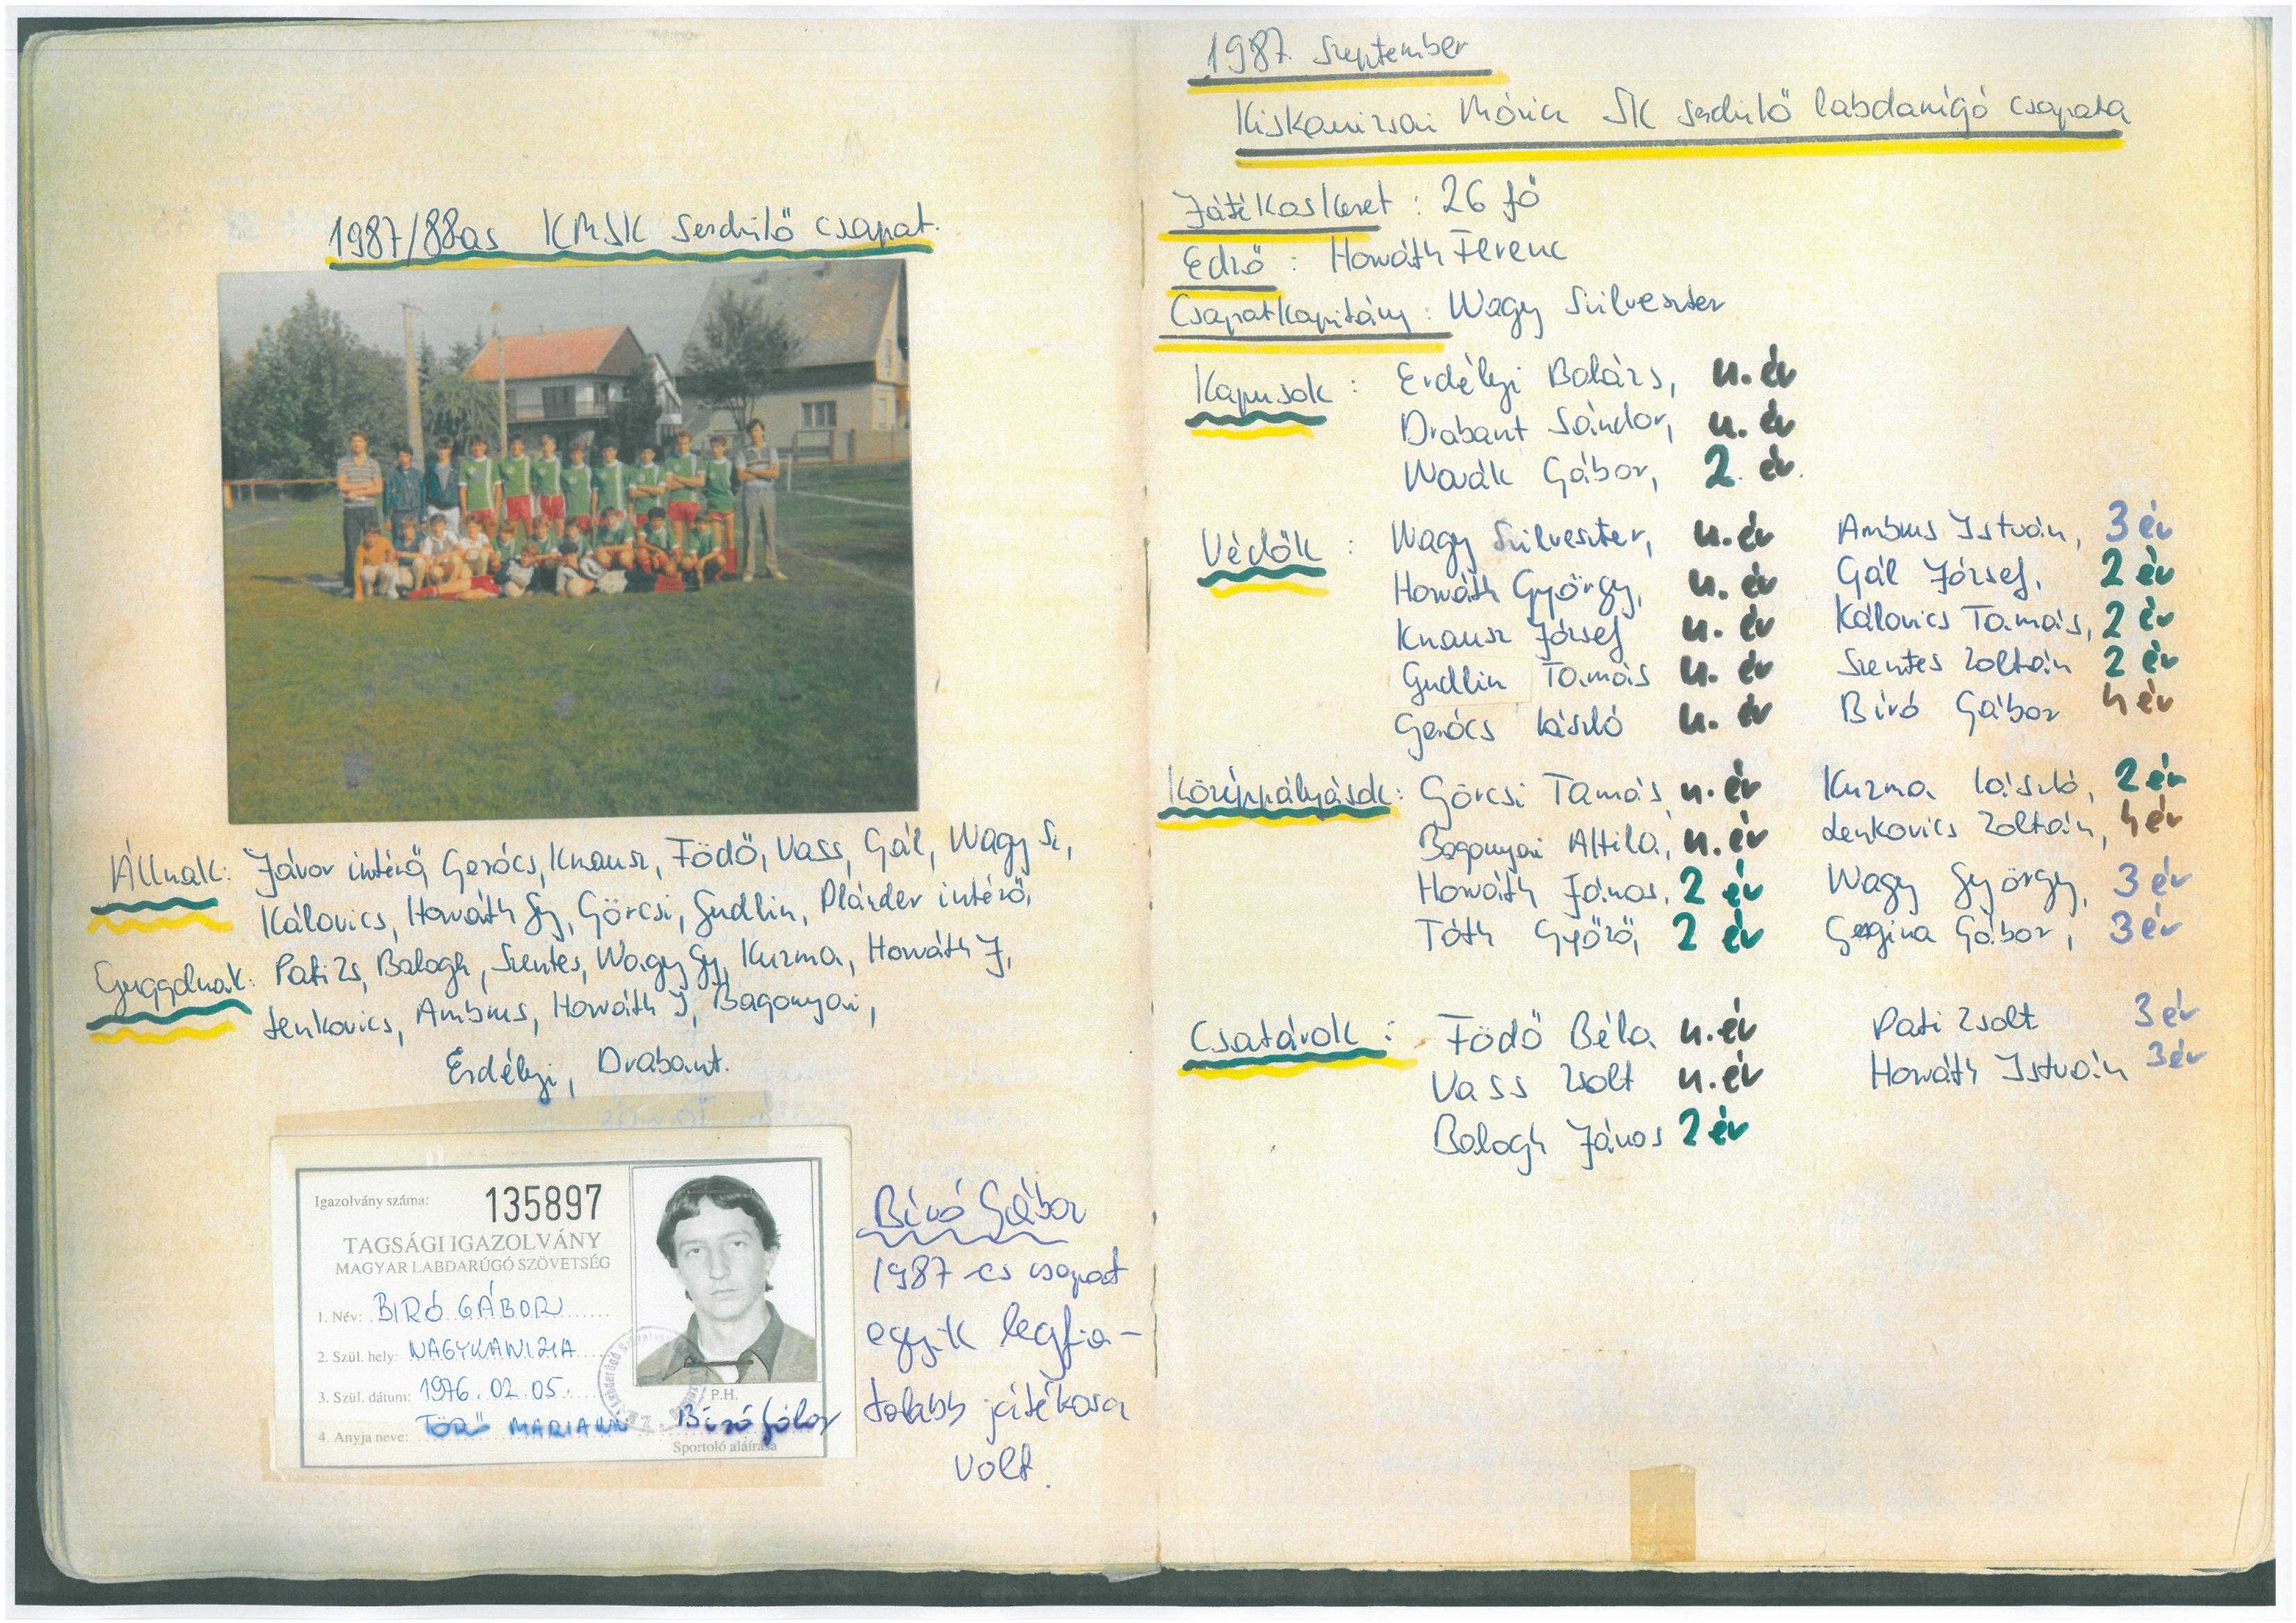 1987/88as KMSK Serdülő csapat.
Állnak: Jávor intéző, Gerócs, Knausz, Födő, Vass, Gál, Nagy Sz,
Kálovics, Horváth Gy, Görcsi, Gudlin, Plánder intéző,
Guggolnak: Pati Zs, Balogh, Szentes, Nagy Gy, Kuzma, Horváth J,
Lenkovics, Ambrus, Horváth I, Bagonyai,
Erdélyi, Drabant.
Igazolvány száma: 135897
TAGSÁGI IGAZOLVÁNY
MAGYAR LABDARÚGÓ SZÖVETSÉG
1. Név: BIRÓ GÁBOR
2. Szül. hely: NAGYKANIZSA
3. Szül. dátum: 1976.02.05.
4. Anyja neve: MARIANN
P.H.
Biró Gábor
Sportoló aláírása
Bíró Gábor
1987-es csapat
egyik legfia-
talabb játékosa
volt.
1987. Szeptember
Kiskanizsai Móricz SK serdülő labdarúgó csapata
Játékoskeret: 26 fő
Edző: Horváth Ferenc
Csapatkapitány: Nagy Szilveszter
Kapusok: Erdélyi Balázs, u. év
Drabant Sándor, u. év
Novák Gábor, 2. év.
Védők: Nagy Szilveszter, u. év Ambrus István, 3 év
Horváth György, u. év Gál József, 2 év
Knausz József u. év Kálovics Tamás, 2 év
Gudlin Tamás u. év Szentes Zoltán 2 év
Gerócs László u. év Bíró Gábor 4 év
Középpályások: Görcsi Tamás, u. év Kuzma László, 2 év
Bagonyai Attila, u. év Lenkovics Zoltán, 4 év
Horváth János, 2 év Nagy György, 3 év
Tóth Győző, 2 év Gábor, 3 év
Csatárok: Födő Béla u. év Pati Zsolt 3 év
Vass Zsolt u. év Horváth István 3 év
Balogh János 2 év